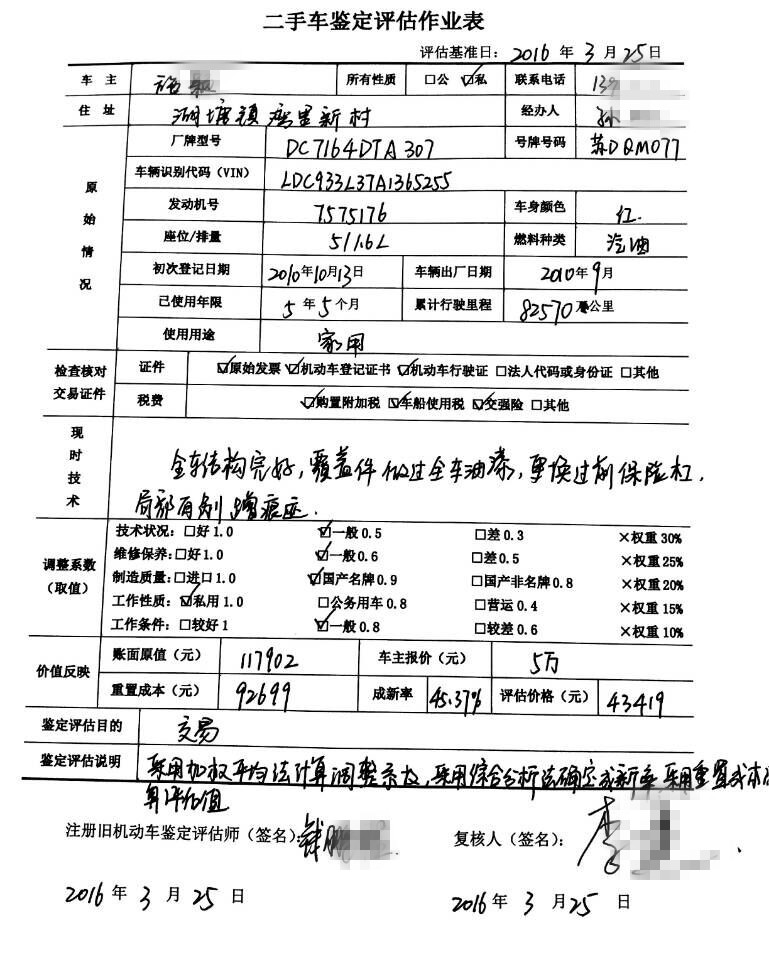 二手车鉴定评估作业表
评估基准日：2016 年 3 月 25 日
车 主 所有性质 □公 ☑私 联系电话 139
住 址 湖塘镇 新村 经办人 孙
原始情况
厂牌型号 DC7164DTA 307 号牌号码 苏DQM077
车辆识别代码（VIN） LDC933L37A1365255
发动机号 7575176 车身颜色 红.
座位/排量 5/1.6L 燃料种类 汽油
初次登记日期 2010年10月13日 车辆出厂日期 2010年9月
已使用年限 5 年 5 个月 累计行驶里程 82570 公里
使用用途 家用
检查核对交易证件
证件 ☑原始发票 ☑机动车登记证书 ☑机动车行驶证 □法人代码或身份证 □其他
税费 ☑购置附加税 ☑车船使用税 ☑交强险 □其他
现时技术
全车结构完好，覆盖件做过全车油漆，更换过前保险杠，
局部有剐蹭痕迹.
调整系数（取值）
技术状况：□好 1.0 ☑一般 0.5 □差 0.3 ×权重 30%
维修保养：□好 1.0 ☑一般 0.6 □差 0.5 ×权重 25%
制造质量：□进口 1.0 ☑国产名牌 0.9 □国产非名牌 0.8 ×权重 20%
工作性质：☑私用 1.0 □公务用车 0.8 □营运 0.4 ×权重 15%
工作条件：□较好 1 ☑一般 0.8 □较差 0.6 ×权重 10%
价值反映
账面原值（元） 117902 车主报价（元） 5万
重置成本（元） 92699 成新率 45.37% 评估价格（元） 43419
鉴定评估目的 交易
鉴定评估说明 采用加权平均法计算调整系数，采用综合分析法确定成新率 采用重置成本
算评估值
注册旧机动车鉴定评估师（签名）：钱鹏 复核人（签名）：李
2016 年 3 月 25 日 2016 年 3 月 25 日